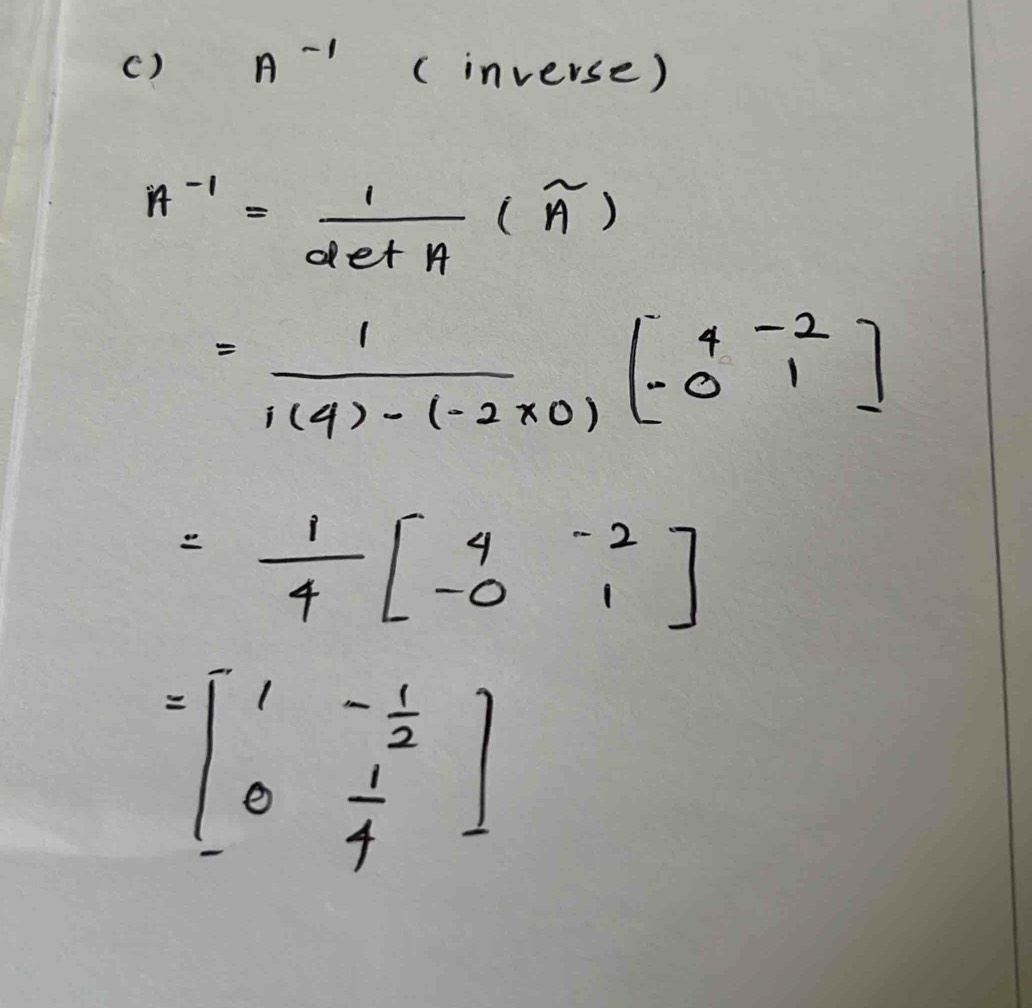 c) A⁻¹ (inverse)
A⁻¹ = 1/det A (Ã)
= 1/(1(4) - (-2×0)) [4 -2; -0 1]
= 1/4 [4 -2; -0 1]
= [1 -1/2; 0 1/4]